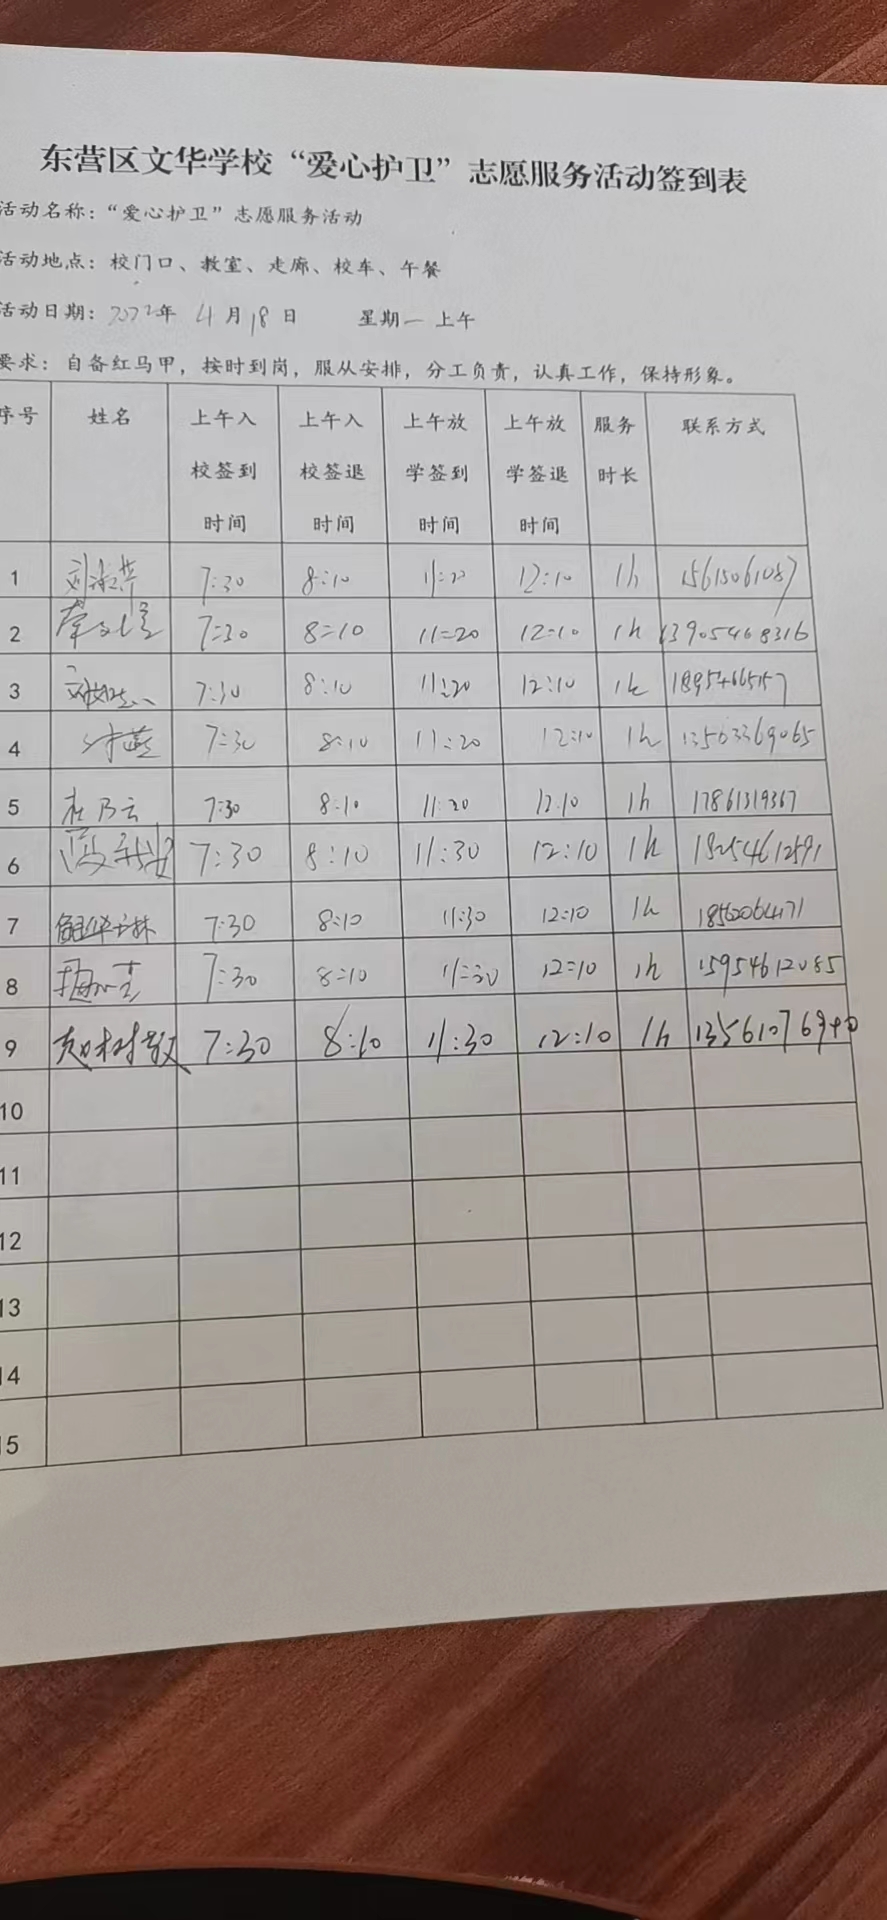 东营区文华学校“爱心护卫”志愿服务活动签到表
活动名称：“爱心护卫”志愿服务活动
活动地点：校门口、教室、走廊、校车、午餐
活动日期：2022年 4月18日 星期一 上午
要求：自备红马甲，按时到岗，服从安排，分工负责，认真工作，保持形象。
序号 姓名 上午入校签到时间 上午入校签退时间 上午放学签到时间 上午放学签退时间 服务时长 联系方式
1 7:30 8:10 11:20 12:10 1h 15615061087
2 7:30 8:10 11:20 12:10 1h 13905468316
3 7:30 8:10 11:20 12:10 1h
4 7:30 8:10 11:20 12:10 1h 13563369065
5 杜乃云 7:30 8:10 11:20 12:10 1h 17861319367
6 7:30 8:10 11:30 12:10 1h
7 7:30 8:10 11:30 12:10 1h
8 7:30 8:10 11:30 12:10 1h 15954612085
9 赵树敬 7:30 8:10 11:30 12:10 1h 13561076940
10
11
12
13
14
15